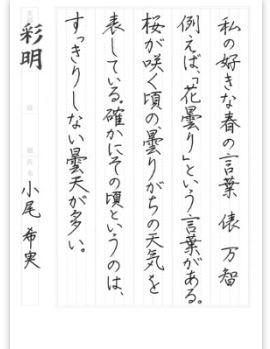 私の好きな春の言葉 俵 万智
例えば、「花曇り」という言葉がある。
桜が咲く頃の、曇りがちの天気を
表している。確かにその頃というのは、
すっきりしない曇天が多い。
彩明
小尾 希実